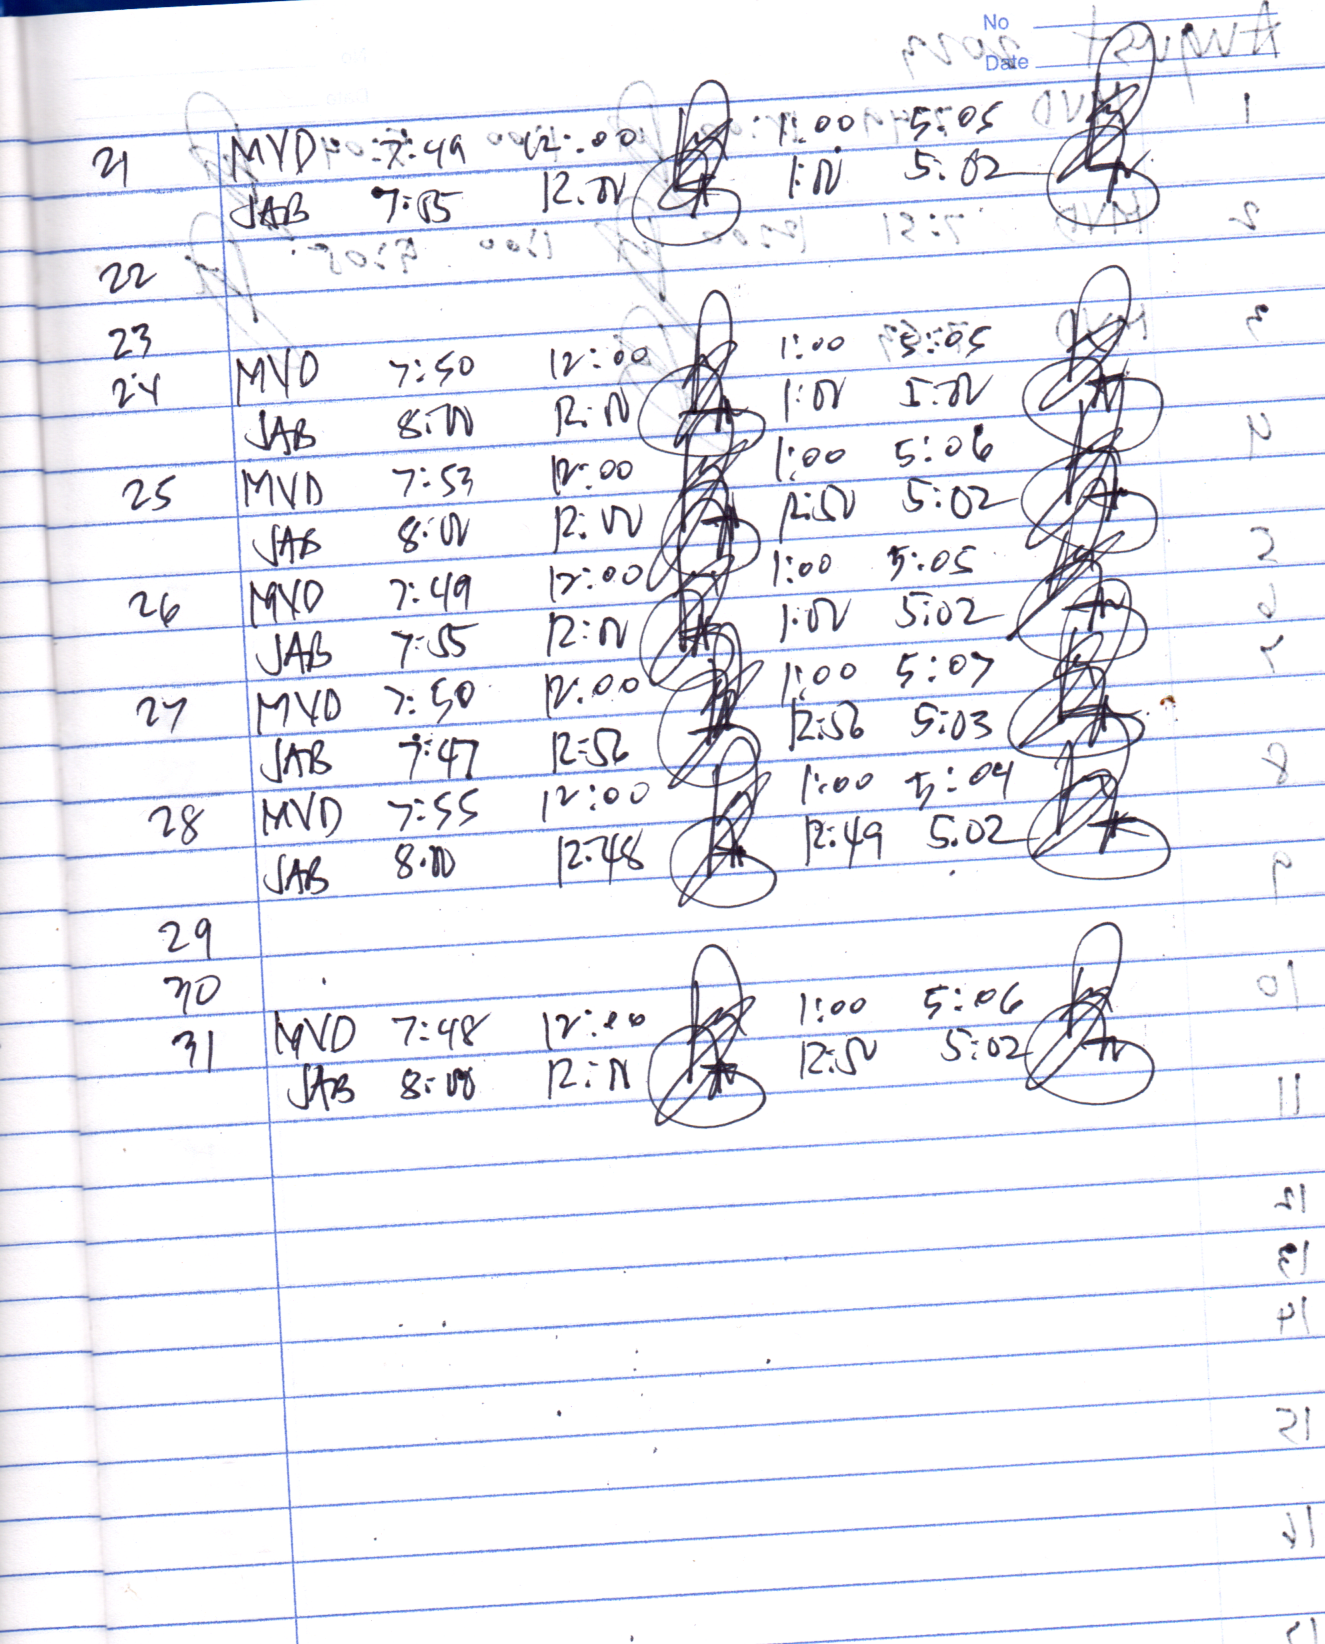 No
Date
21 MVD 7:49 12:00 1:00 5:05
JAB 7:55 12:00 1:00 5:02
22
23
24 MVD 7:50 12:00 1:00 5:05
JAB 8:00 12:00 1:00 5:00
25 MVD 7:53 12:00 1:00 5:06
JAB 8:00 12:00 12:50 5:02
26 MVD 7:49 12:00 1:00 5:05
JAB 7:55 12:00 1:00 5:02
27 MVD 7:50 12:00 1:00 5:07
JAB 7:47 12:56 12:56 5:03
28 MVD 7:55 12:00 1:00 5:04
JAB 8:00 12:48 12:49 5:02
29
30
31 MVD 7:48 12:00 1:00 5:06
JAB 8:00 12:00 12:50 5:02